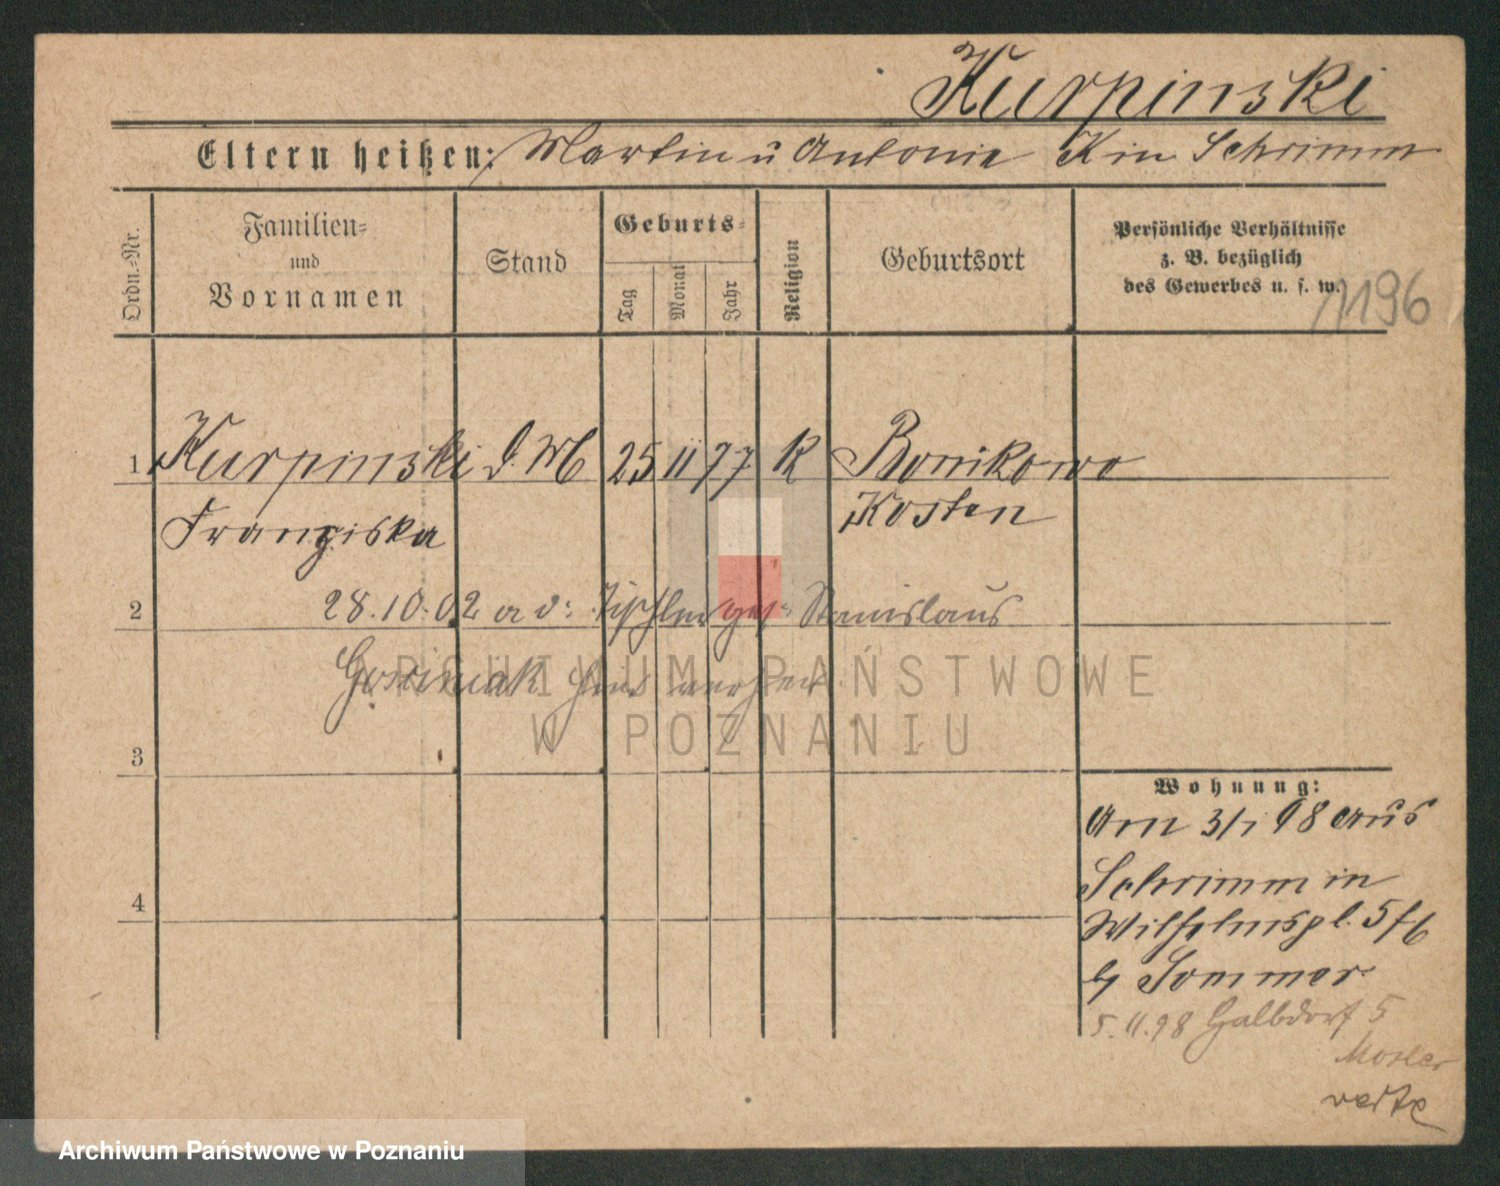 Kurpinski
Eltern heißen: Martin u Antonie K in Schrimm
Ordn.-Nr.
Familien-
und
Vornamen
Stand
Geburts-
Tag
Monat
Jahr
Religion
Geburtsort
Persönliche Verhältnisse
z. B. bezüglich
des Gewerbes u. s. w.
1196
1 Kurpinski d. M 25 11 77 K Bonikowo
Franziska Kosten
2 28.10.02 a d: Tischler ges: Stanislaus
3
4
Wohnung:
Am 3/1 98 aus
Schrimm in
Wilhelmspl. 5/6
by Sommer
5.11.98 Halbdorf 5
Mosler
verte
ARCHIWUM PAŃSTWOWE
W POZNANIU
Archiwum Państwowe w Poznaniu